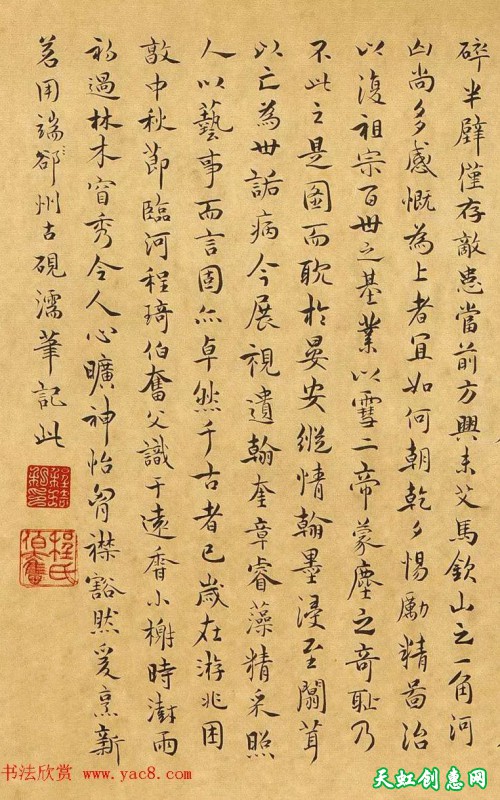 碎半壁僅存敵患當前方興未艾馬欽山之一角河
山尚多感慨為上者宜如何朝乾夕惕勵精啚治
以復祖宗百世之基業以雪二帝蒙塵之奇恥乃
不此之是圖而耽於晏安縱情翰墨浸至闒茸
以亡為世詬病今展視遺翰奎章睿藻精采照
人以藝事而言固亦卓然千古者已歲在游兆困
敦中秋節臨河程琦伯奮父識于遠香小榭時澍雨
初過林木窅秀令人心曠神怡胷襟豁然爰烹新
茗用端郤州古硯濡筆記此
程琦
程氏
伯奮
书法欣赏 www.yac8.com
天虹创惠网